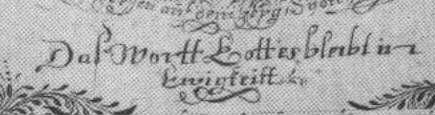 Das Wortt Gottes bleibt in
Ewigkeitt